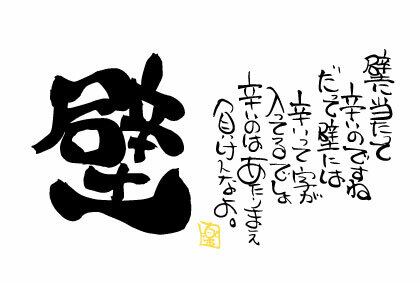 壁に当たって
辛いのですね
だって壁には
辛いって字が
入ってるでしょ
辛いのはあたりまえ
負けんなよ。
壁